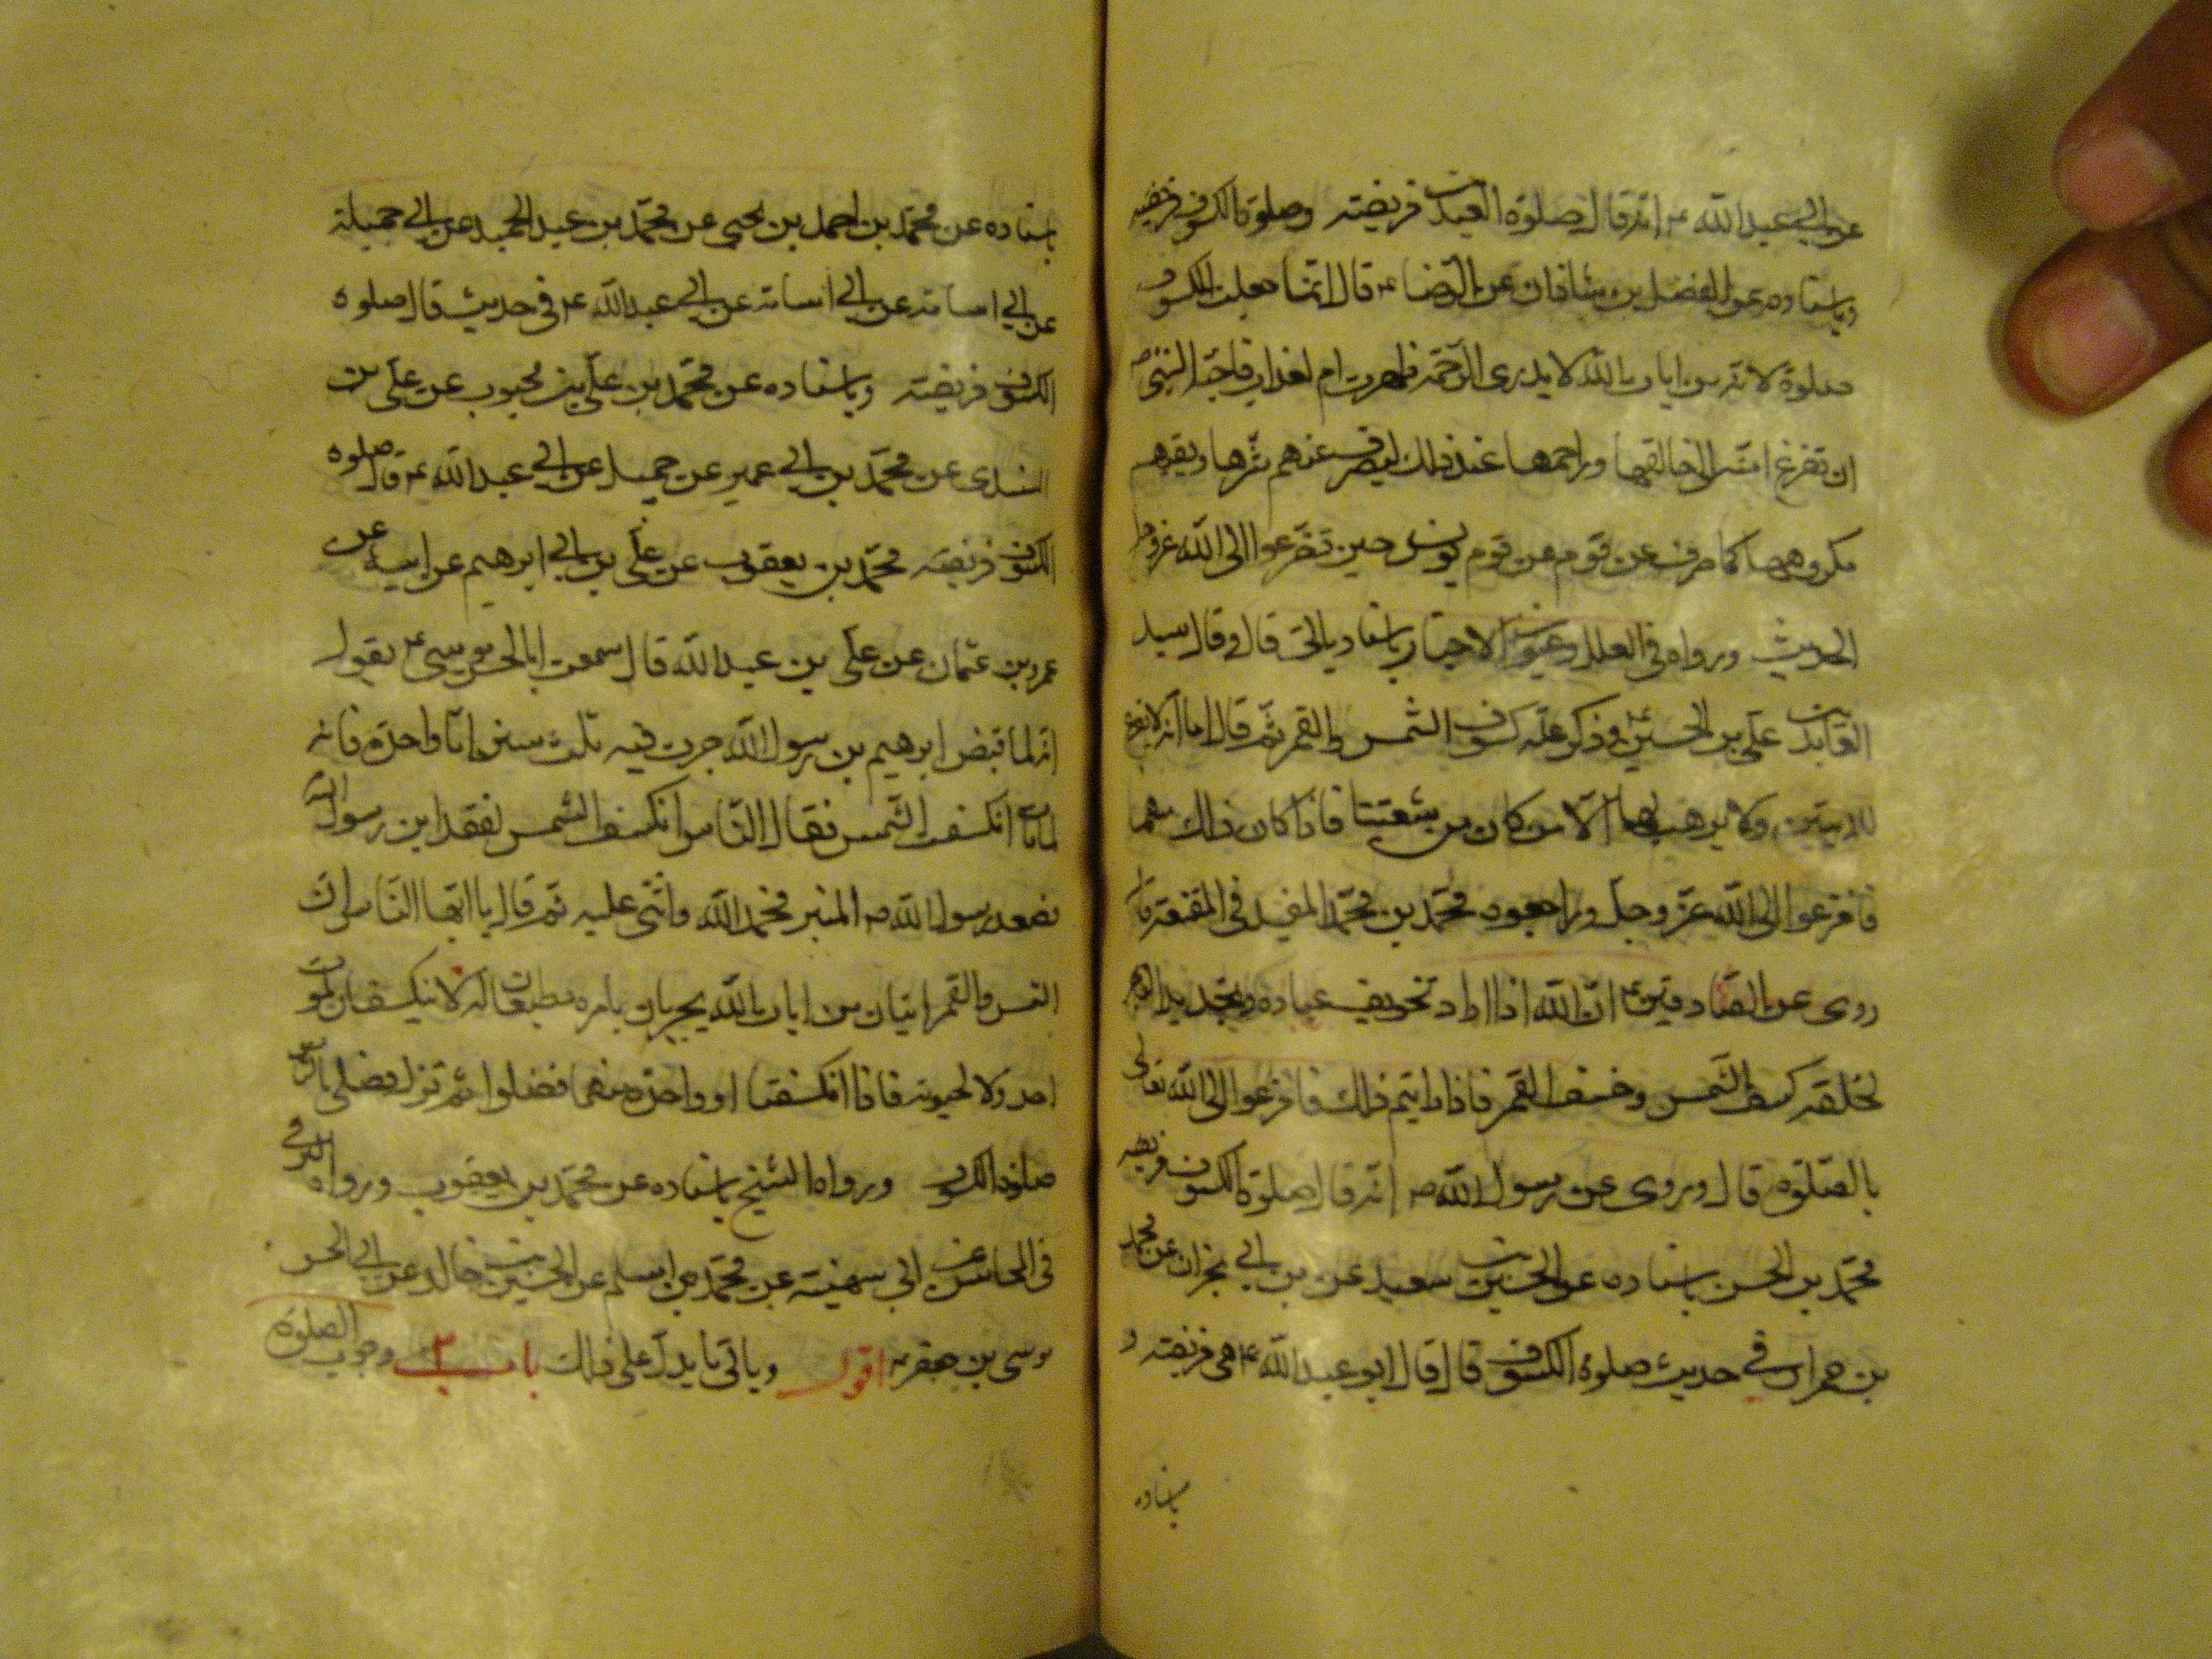 عن ابي عبد الله ع انه قال صلوة العيدين فريضته وصلوة الكسوف فريضه
وباسناده عن الفضل بن شاذان عن الرضا ع قال انما جعلت الكسوف
صلوة لانه من ايات الله لا يدرى الرحمة ظهرت ام لعذاب فاحب النبي ص
ان تفزع امته الى خالقها وراحمها عند ذلك ليصرف عنهم شرها ويقيهم
مكروهها كما صرف عن قوم عن قوم يونس حين تضرعوا الى الله عزوجل
الحديث ورواه في العلل وعيون الاخبار باسناد ياتى قال وقال سيد
العابدين علي بن الحسين ع وذكر علة كسوف الشمس والقمر ثم قال اما انه لا يفزع
للايتين ولا يرهب لهما الا من كان من شيعتنا فاذا كان ذلك منهما
فافزعوا الى الله عز وجل وراجعوه محمد بن محمد المفيد في المقنعة قال
روى عن الصادقين ع ان الله اذا اراد تخويف عباده وتجديد الزجر
لخلقه كسف الشمس وخسف القمر فاذا رايتم ذلك فافزعوا الى الله تعالى
بالصلوة قال وروى عن رسول الله ص انه قال صلوة الكسوف فريضه
محمد بن الحسن باسناده عن الحسين بن سعيد عن بن ابي نجران عن محمد
بن حمران في حديث صلوة الكسوف قال قال ابو عبد الله ع هى فريضته و
باسناده
باسناده عن محمد بن احمد بن يحيى عن محمد بن عبد الحميد عن ابي جميلة
عن ابي اسامة عن ابي اسامة عن ابي عبد الله ع في حديث قال صلوة
الكسوف فريضته وباسناده عن محمد بن علي بن محبوب عن علي بن
السندى عن محمد بن ابي عمير عن جميل عن ابي عبد الله ع قال صلوه
الكسوف فريضته محمد بن يعقوب عن علي بن ابي ابرهيم عن ابيه عن
عمرو بن عثمان عن علي بن عبد الله قال سمعت ابا الحسن موسى ع يقول
انه لما قبض ابرهيم بن رسول الله جرت فيه ثلث سنن اما واحدة فانه
لما مات انكسفت الشمس فقال الناس انكسف الشمس لفقد ابن رسول الله
فصعد رسول الله ص المنبر فحمد الله واثنى عليه ثم قال يا ايها الناس ان
الشمس والقمر ايتان من ايات الله يجريان بامره مطيعان له لا ينكسفان لموت
احد ولا لحيوته فاذا انكسفتا او واحدة منهما فصلوا ثم نزل فصلى بالناس
صلوة الكسوف ورواه الشيخ باسناده عن محمد بن يعقوب ورواه البرقي
في المحاسن عن ابي سمينة عن محمد بن اسلم عن الحسين بن خالد عن ابي الحسن
موسى بن جعفر ع اقول وياتي ما يدل على ذلك باب ٣ وجوب الصلوة